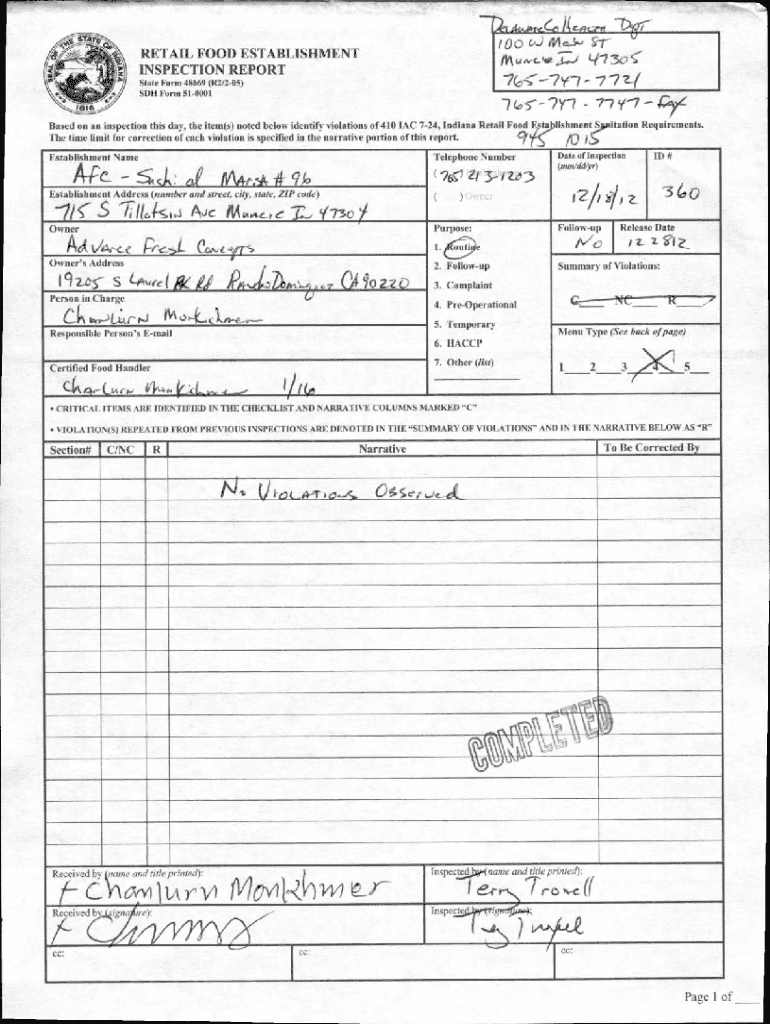 Delaware Co Health Dpt
100 W Main ST
Muncie In 47305
765-747-7721
765-747-7747-Fax
SEAL OF THE STATE OF INDIANA
1816
RETAIL FOOD ESTABLISHMENT
INSPECTION REPORT
State Form 48669 (R2/2-05)
SDH Form 51-0001
Based on an inspection this day, the item(s) noted below identify violations of 410 IAC 7-24, Indiana Retail Food Establishment Sanitation Requirements.
The time limit for correction of each violation is specified in the narrative portion of this report.
945 1015
Establishment Name
Afc - Sushi at Marsh # 96
Telephone Number
(765) 213-1203
( ) Owner
Date of Inspection
(mm/dd/yr)
12/18/12
ID #
360
Establishment Address (number and street, city, state, ZIP code)
715 S Tillotson Ave Muncie In 47304
Owner
Advance Fresh Concepts
Purpose:
1. Routine
2. Follow-up
3. Complaint
4. Pre-Operational
5. Temporary
6. HACCP
7. Other (list)
Follow-up
No
Release Date
12 28 12
Owner's Address
19205 S Laurel PK Rd Rancho Dominguez CA 90220
Summary of Violations:
C NC R
Person in Charge
Chanlurn Monkhmer
Responsible Person's E-mail
Menu Type (See back of page)
1 2 3 4 5
Certified Food Handler
Chanlurn Monkhmer 1/16
• CRITICAL ITEMS ARE IDENTIFIED IN THE CHECKLIST AND NARRATIVE COLUMNS MARKED "C"
• VIOLATION(S) REPEATED FROM PREVIOUS INSPECTIONS ARE DENOTED IN THE "SUMMARY OF VIOLATIONS" AND IN THE NARRATIVE BELOW AS "R"
Section# C/NC R Narrative To Be Corrected By
No Violations Observed
COMPLETED
Received by (name and title printed):
x Chanlurn Monkhmer
Inspected by (name and title printed):
Terry Troxell
Received by (signature):
Inspected by (signature):
Terry Troxell
cc:
cc:
cc:
Page 1 of